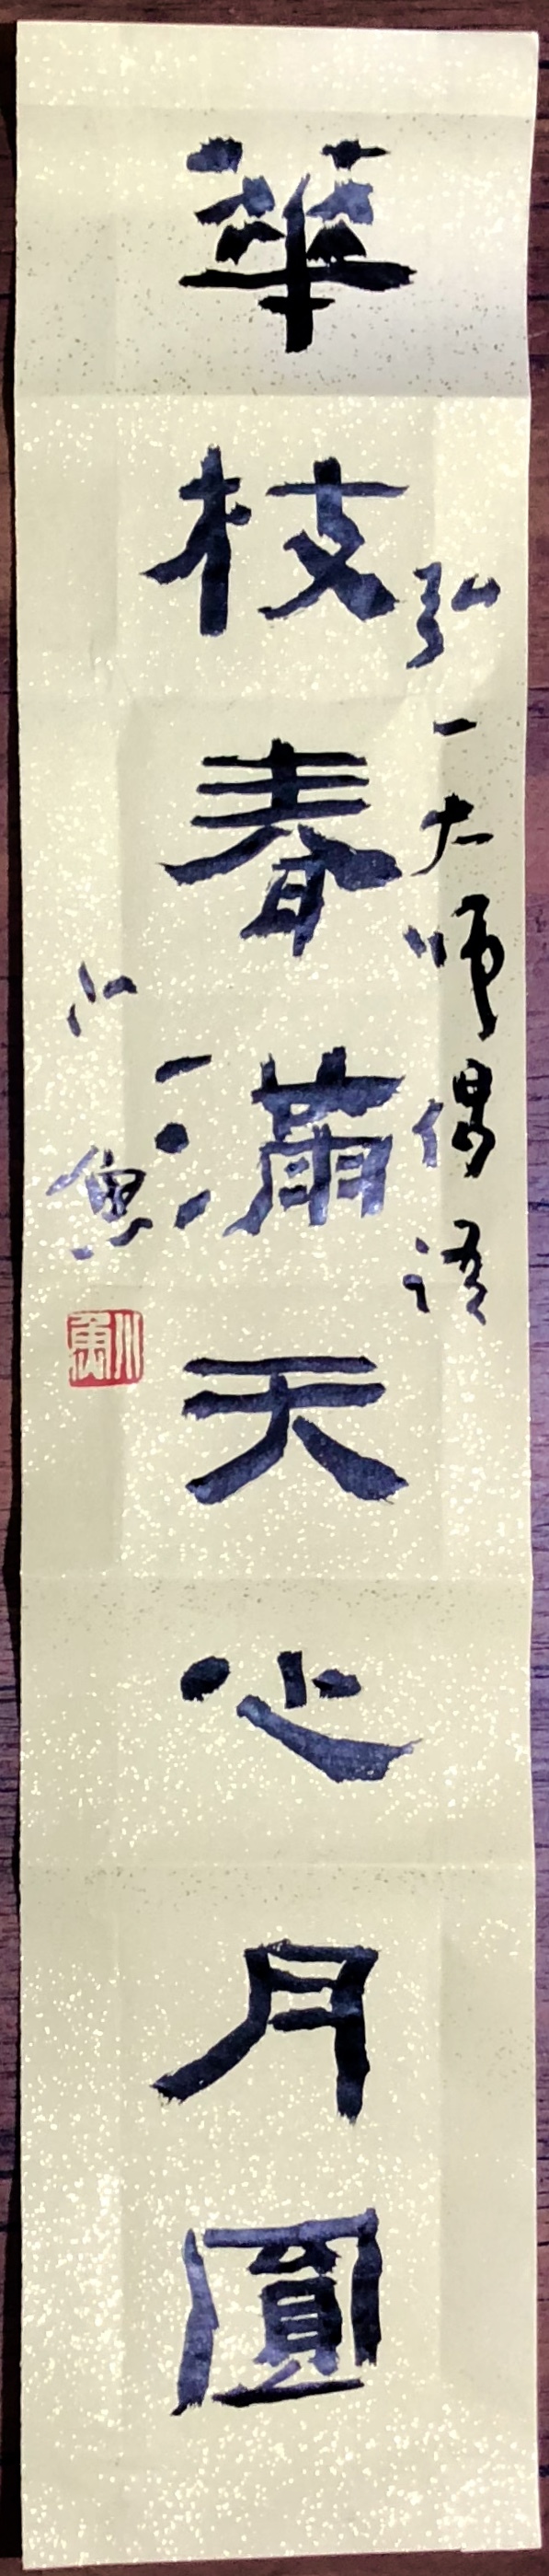 華枝春滿天心月圓
弘一大师偈語
小魚
小魚